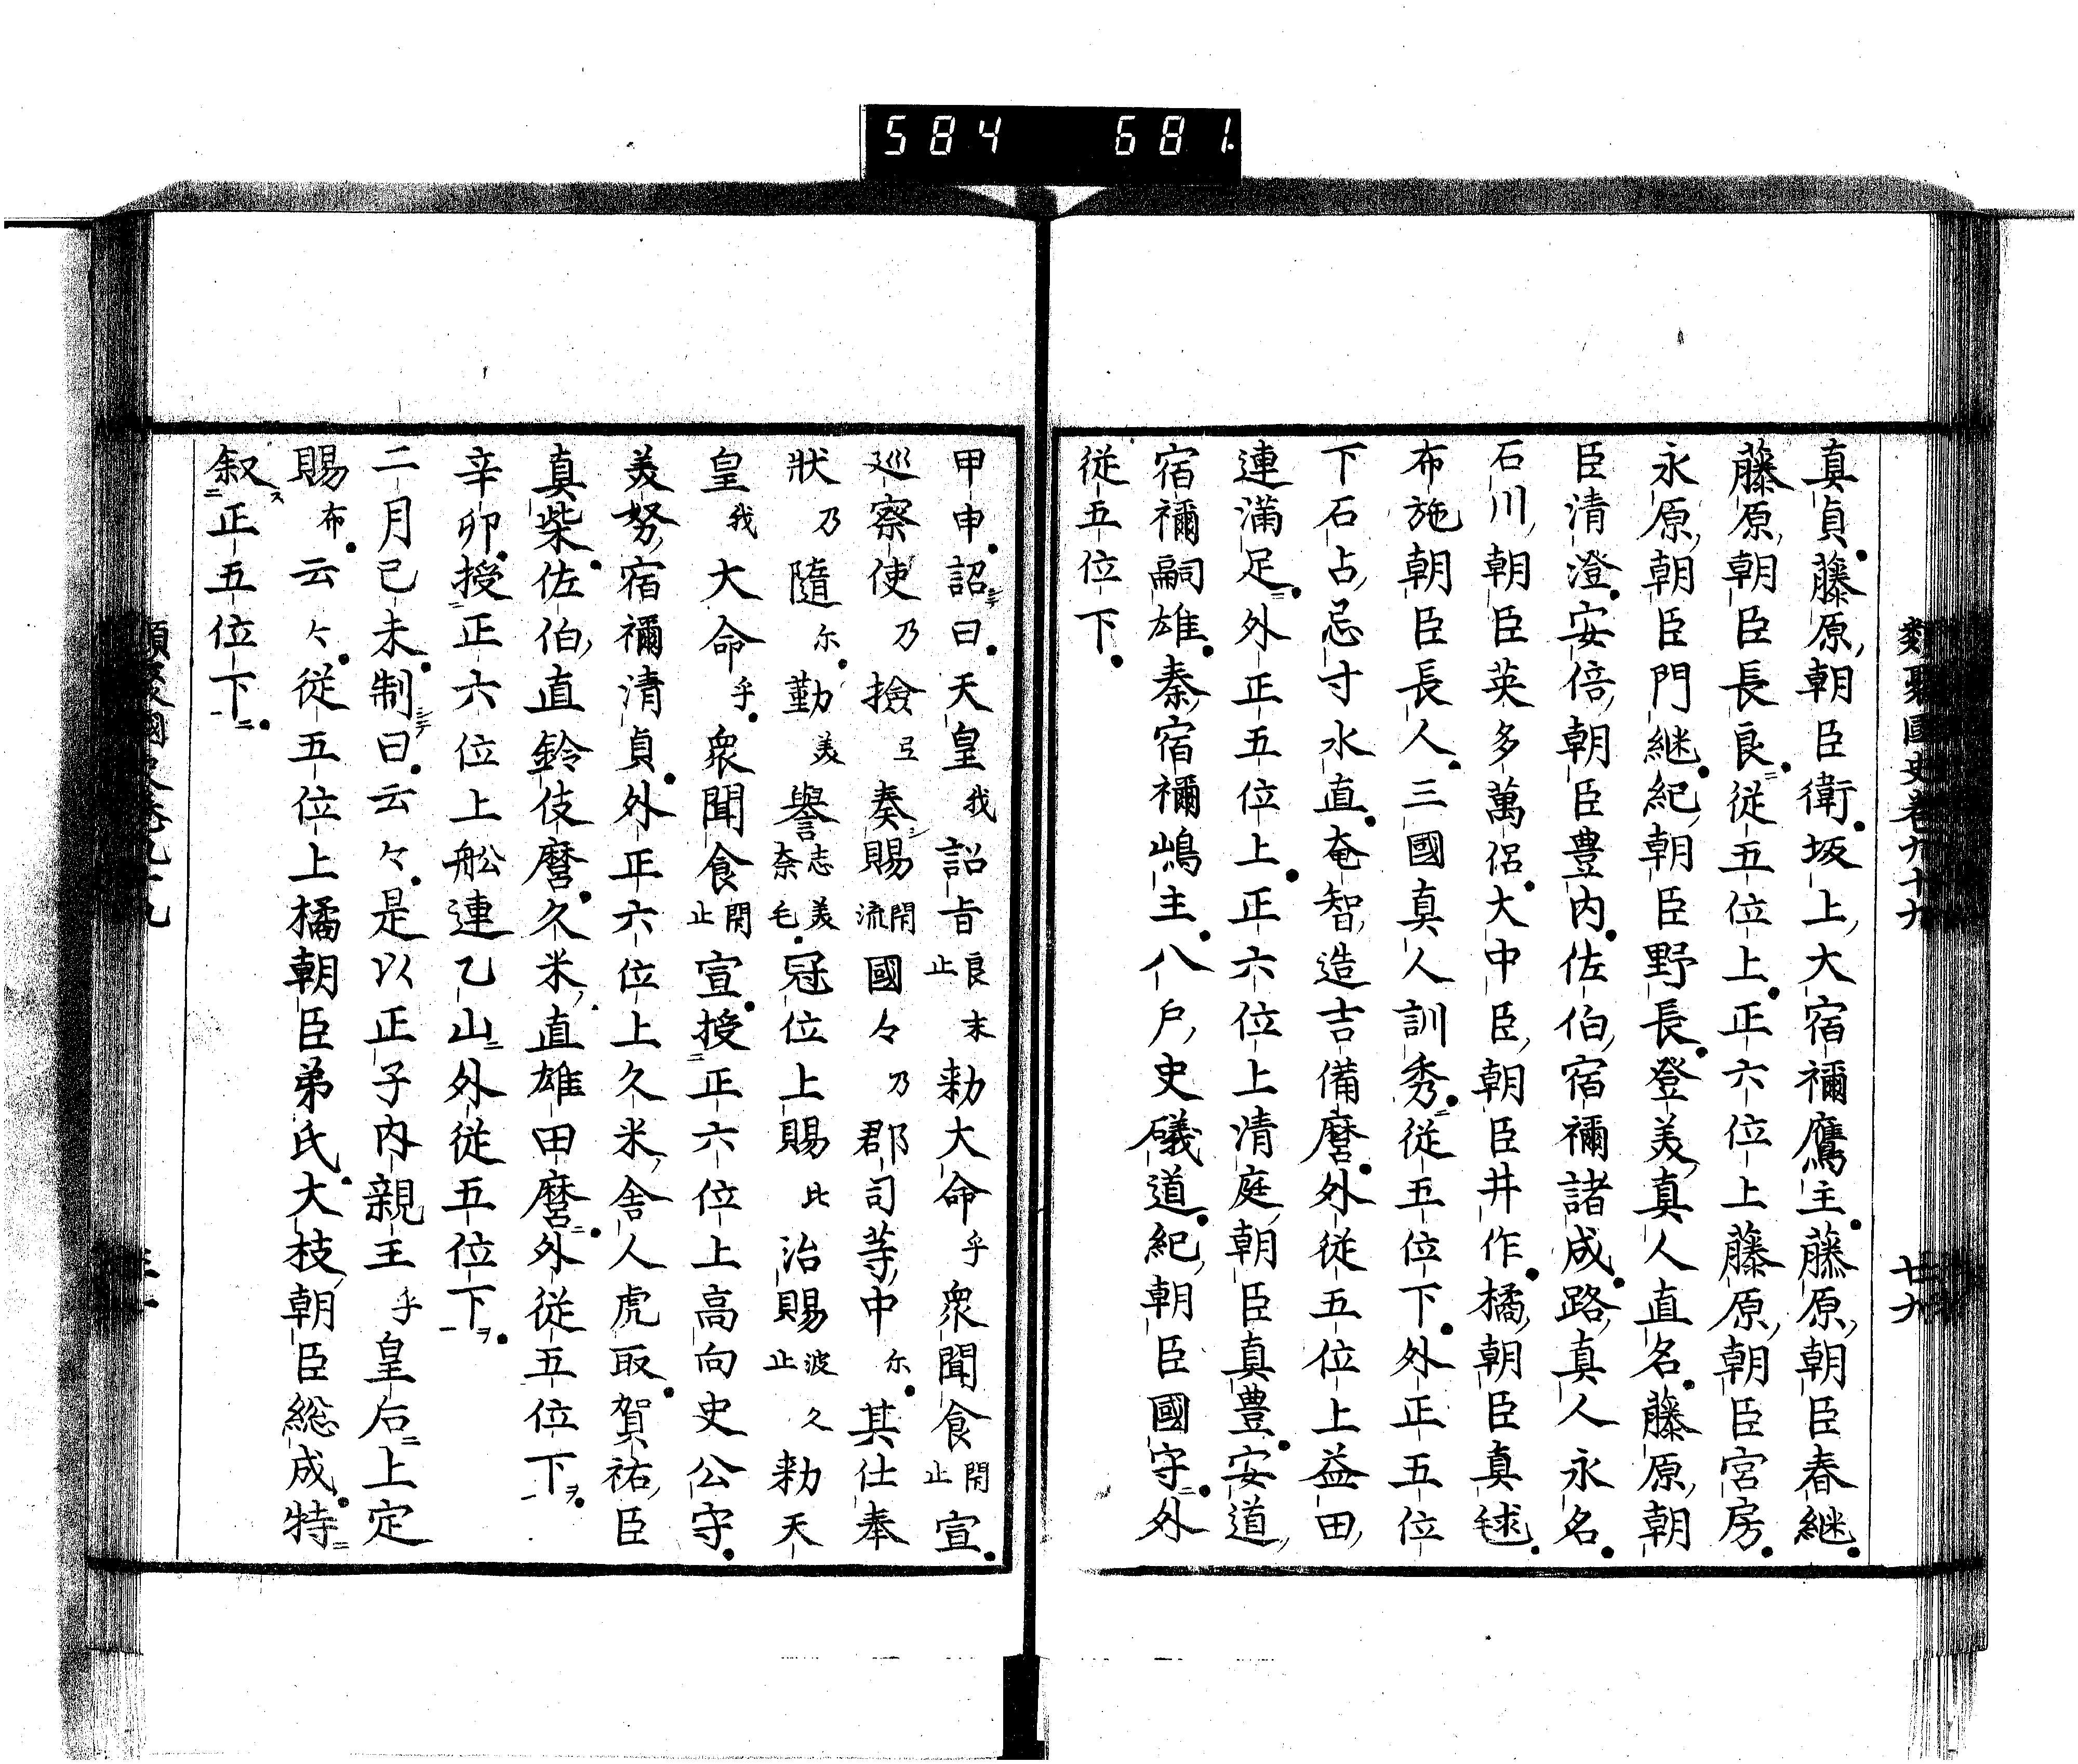 584 681
類聚國史卷九十九
廿九
真貞藤原朝臣衛坂上大宿禰鷹主藤原朝臣春継
藤原朝臣長良従五位上正六位上藤原朝臣宮房
永原朝臣門継紀朝臣野長登美真人直名藤原朝
臣清澄安倍朝臣豊内佐伯宿禰諸成路真人永名
石川朝臣英多萬侶大中臣朝臣井作橘朝臣真毬
布施朝臣長人三國真人訓秀従五位下外正五位
下石占忌寸水直奄智造吉備麿外従五位上益田
連満足外正五位上正六位上清庭朝臣真豊安道
宿禰嗣雄秦宿禰嶋主八戸史礒道紀朝臣國守外
従五位下
甲申詔曰天皇我詔旨良止末勅大命乎衆聞食閇止宣
巡察使乃撿弖奏賜閇流國々乃郡司等中尓其仕奉
狀乃隨尓勤美譽志美奈毛冠位上賜比治賜波止久勅天
皇我大命乎衆聞食閇止宣授正六位上高向史公守
美努宿禰清貞外正六位上久米舎人虎取賀祐臣
真柴佐伯直鈴伎麿久米直雄田麿外従五位下
辛卯授正六位上舩連乙山外従五位下
二月己未制曰云々是以正子内親王乎皇后上定
賜布云々従五位上橘朝臣弟氏大枝朝臣総成特
叙正五位下